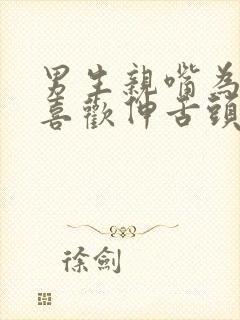 男生親嘴為
喜歡伸舌頭
徐劍